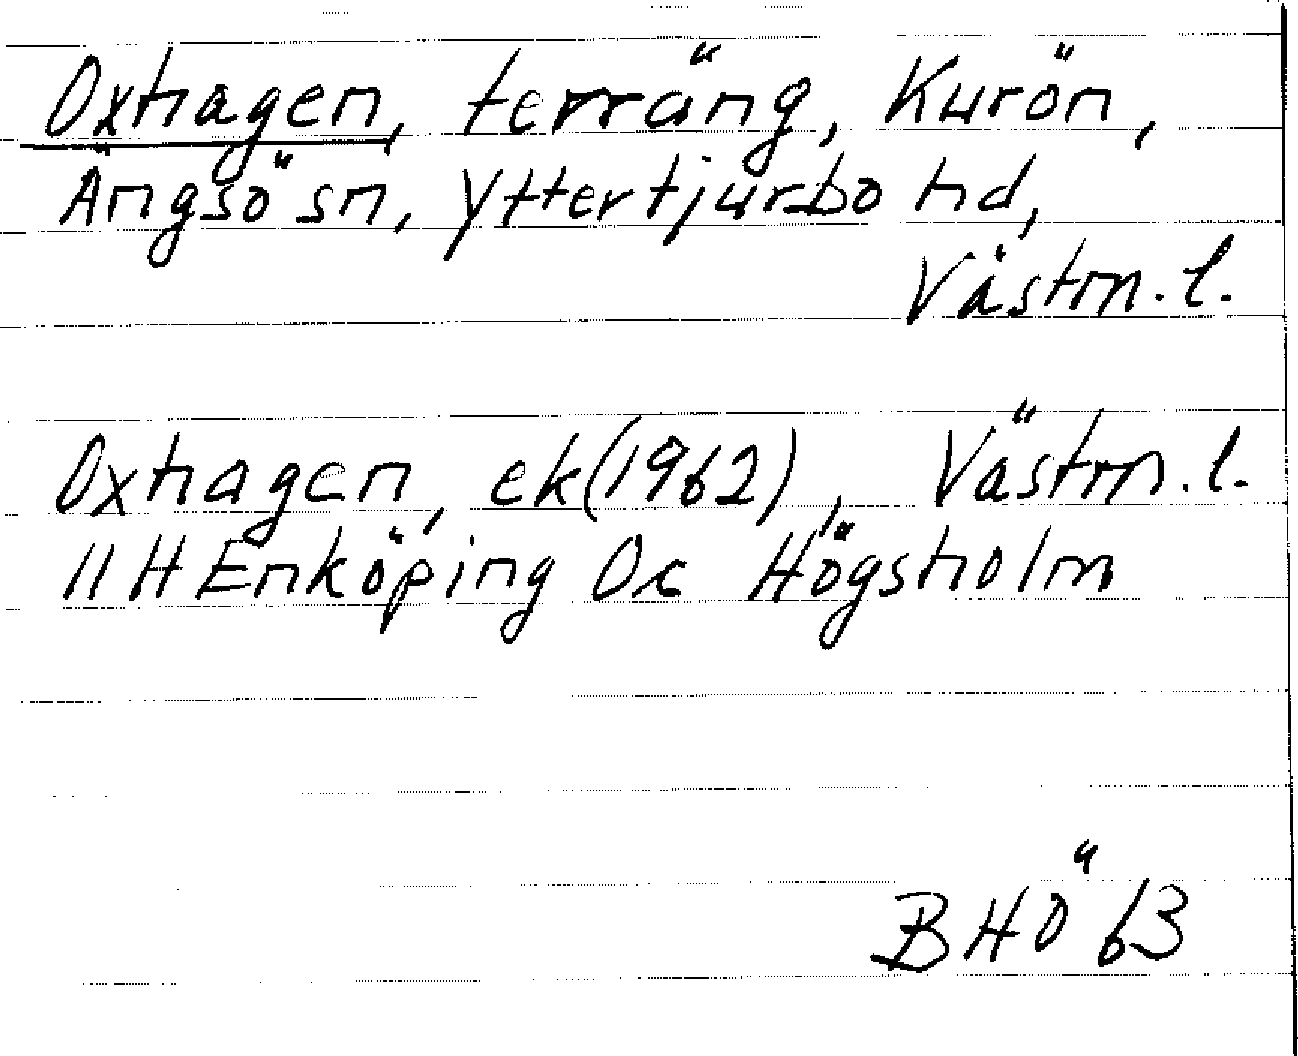 Oxhagen, terräng, Kurön,
Ängsö sn, Yttertjurbo hd,
Västm. l.
Oxhagen, ek (1962), Västm. l.
11H Enköping 0c Högsholm
BHÖ 63